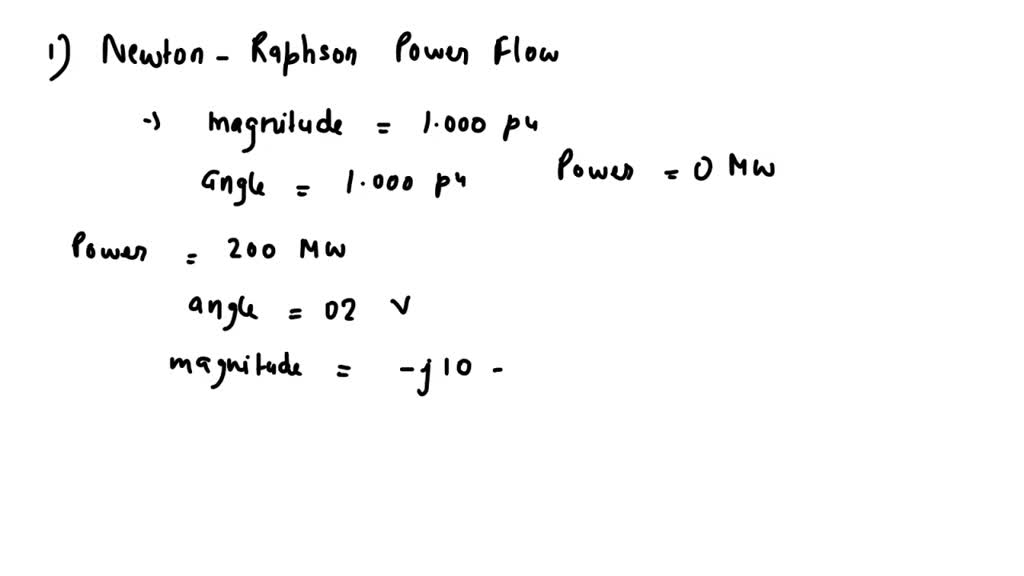 1) Newton - Raphson Power Flow
→ magnitude = 1.000 pu
angle = 1.000 pu Power = 0 MW
Power = 200 MW
angle = 02 V
magnitude = -j10 -